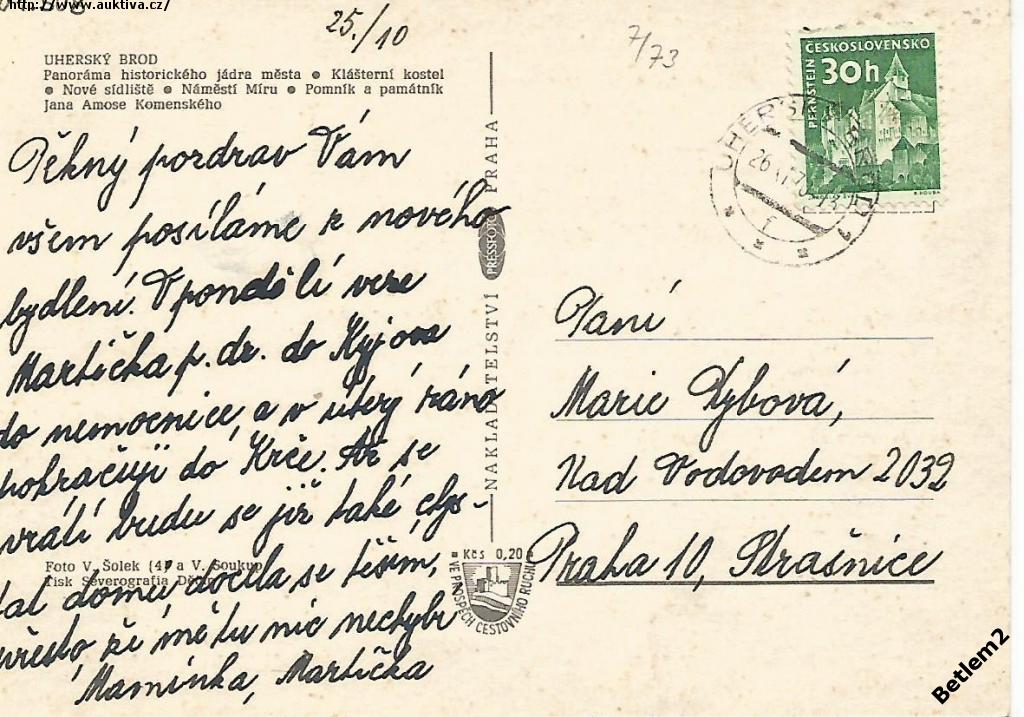 http://www.auktiva.cz/
25./10
7/73
UHERSKÝ BROD
Panoráma historického jádra města ● Klášterní kostel
● Nové sídliště ● Náměstí Míru ● Pomník a památník
Jana Amose Komenského
Pěkný pozdrav Vám
všem posíláme z nového
bydlení. V pondělí veze
Martička p. dr. do Kyjova
do nemocnice, a v úterý ráno
pokračují do Krče. Až se
vrátí budu se již také chys-
tat domů docela se těším,
přesto že mě tu nic nechybí
Maminka, Martička
Foto V. Šolek (4) a V. Soukup
Tisk Severografia Děčín
NAKLADATELSTVÍ PRESSFOTO PRAHA
Kčs 0,20
VE PROSPĚCH CESTOVNÍHO RUCHU
ČESKOSLOVENSKO
30h
PERNŠTEJN
UHERSKÝ BROD 1
Paní
Marie Rybová,
Nad Vodovodem 2032
Praha 10, Strašnice
Betlem2